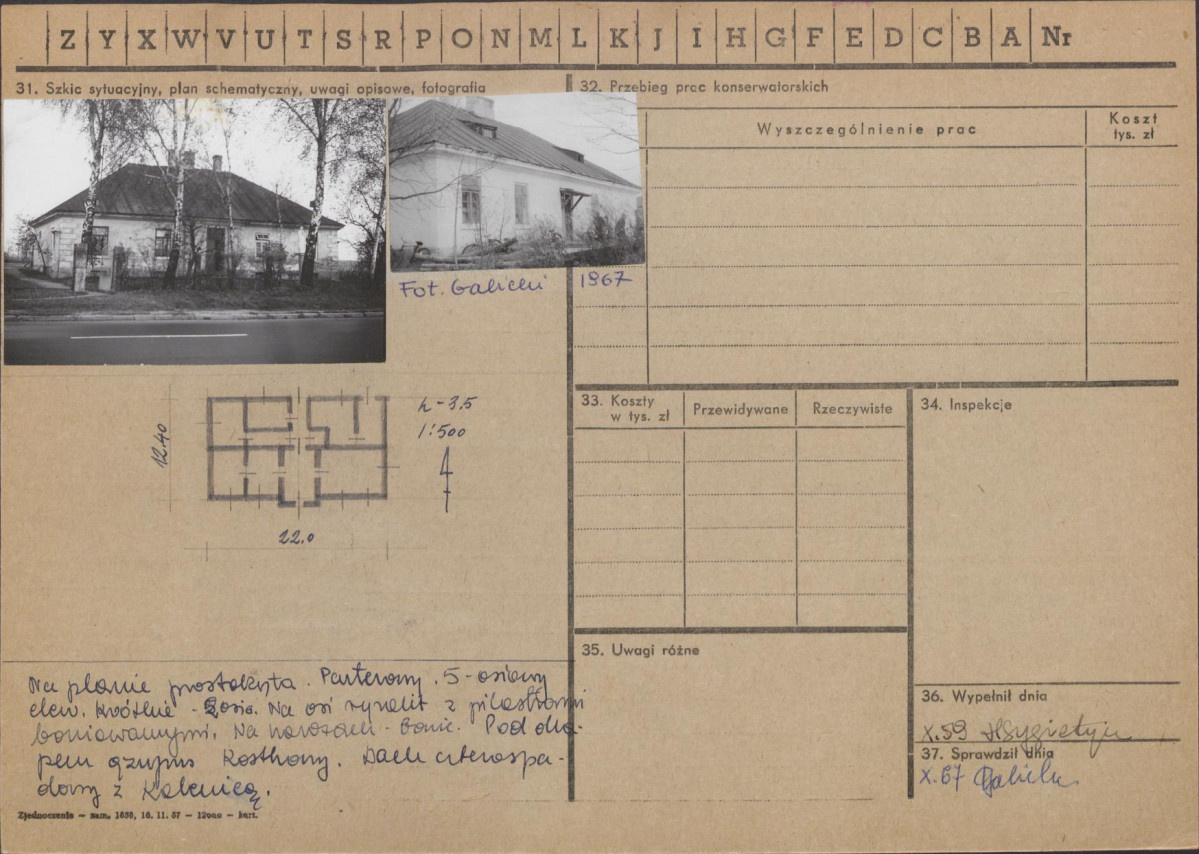 Z Y X W V U T S R P O N M L K J I H G F E D C B A Nr
31. Szkic sytuacyjny, plan schematyczny, uwagi opisowe, fotografia
Fot. Galicki 1967
h-3.5
1:500
12.40
22.0
Na planie prostokąta. Parterowy. 5-osiowy
elew. krótkie - 2osie. Na osi ryzalit z pilastrami
boniowanymi. Na narożach - bonie. Pod oka-
pem gzyms kostkowy. Dach czterospa-
dowy z kalenicą.
Zjednoczenie — zam. 1656, 16. 11. 57 — 12000 — kart.
32. Przebieg prac konserwatorskich
Wyszczególnienie prac
Koszt
tys. zł
33. Koszty
w tys. zł
Przewidywane
Rzeczywiste
34. Inspekcje
35. Uwagi różne
36. Wypełnił dnia
X.59
37. Sprawdził dnia
X.67 Galicki